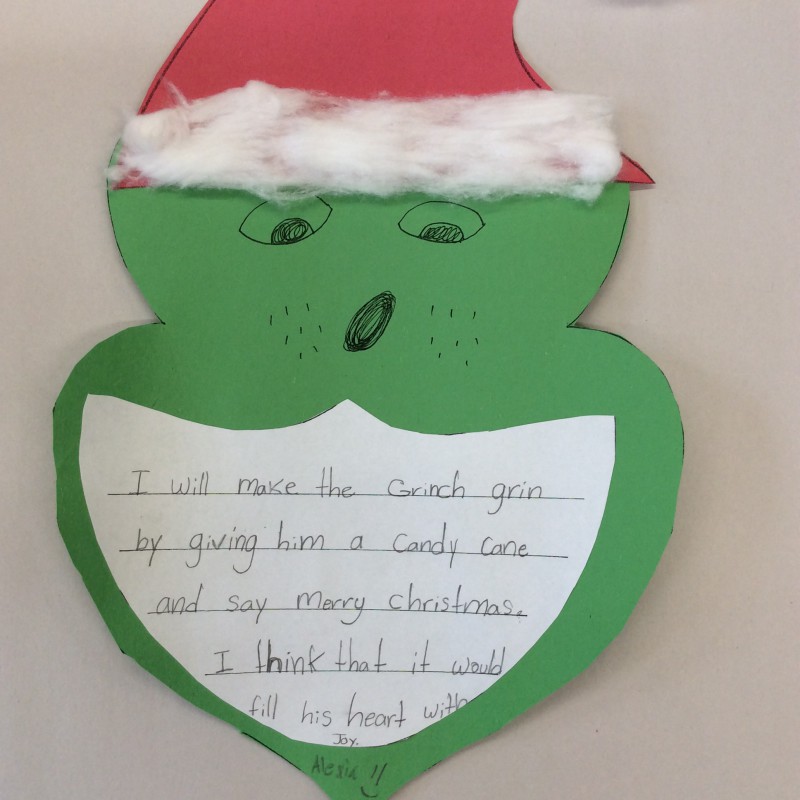 I will make the Grinch grin
by giving him a candy cane
and say merry christmas.
I think that it would
fill his heart with
Joy.
Alexia